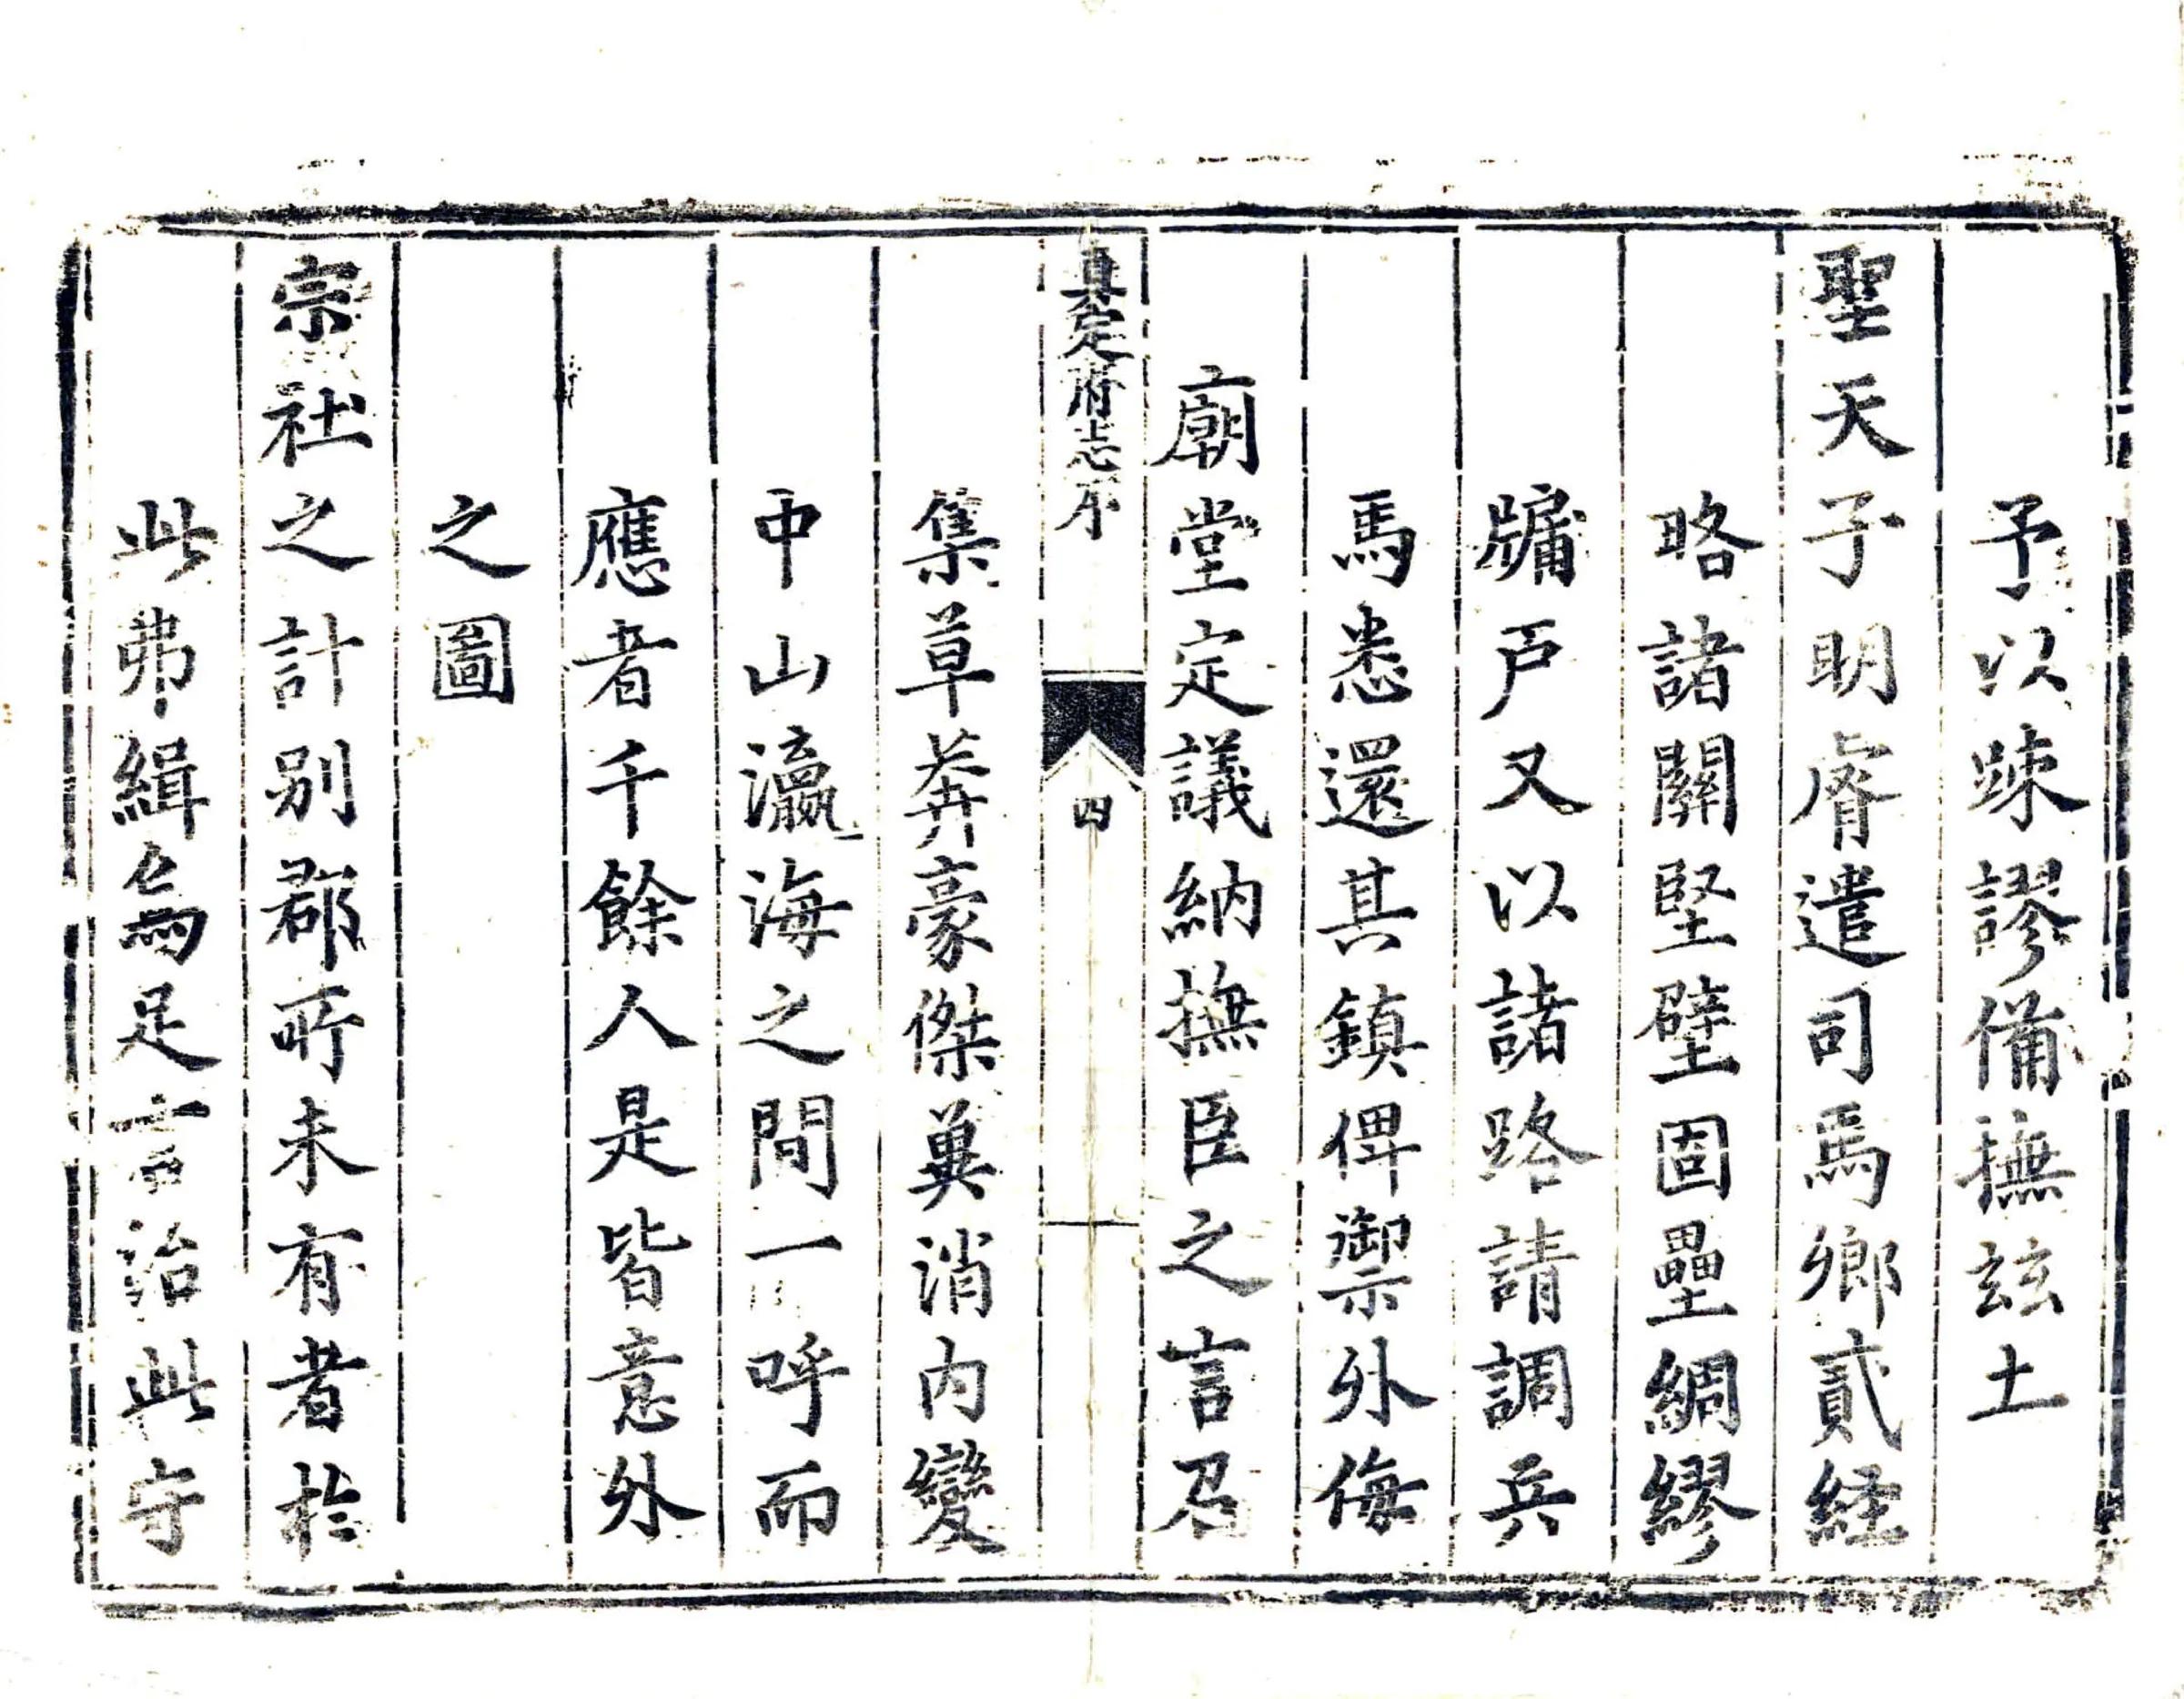 予以踈謬備撫玆土
聖天子明膚遣司馬鄉貳経
略諸關堅壁固壘綢繆
牖戸又以諸路請調兵
馬悉還其鎮俾禦外侮
廟堂定議納撫臣之言召
真定府志序
四
集草莽豪傑冀消内變
中山瀛海之間一呼而
應者千餘人是皆意外
之圖
宗社之計别郡所未有者於
此弗緝烏足言治此守